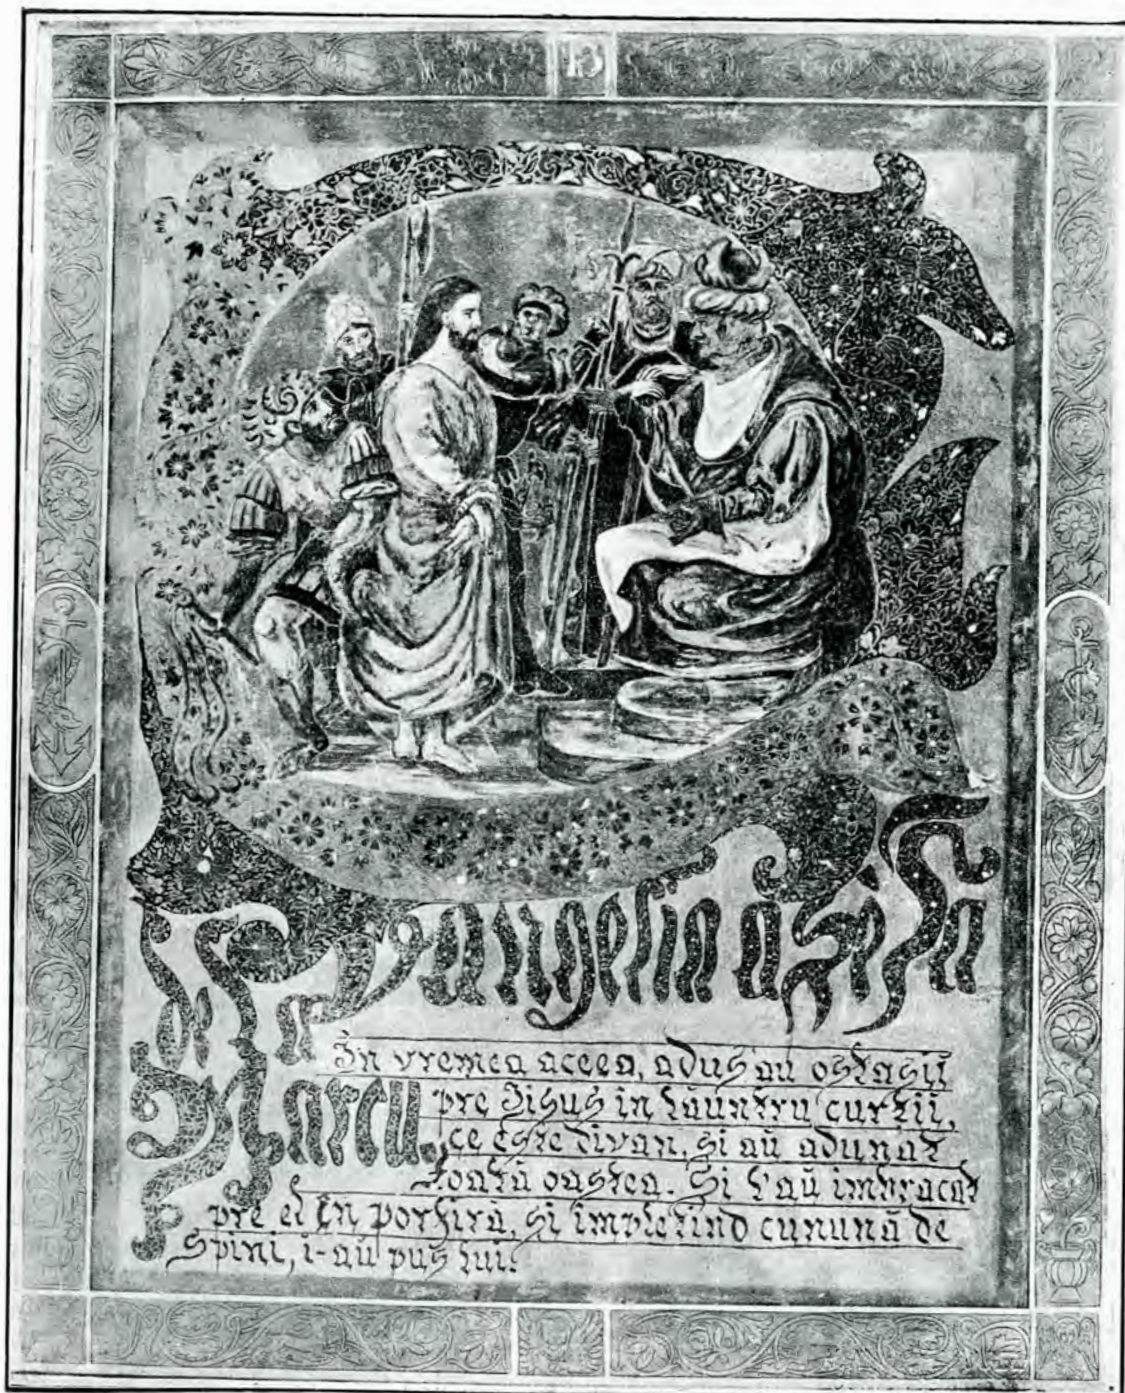 13
Evangelia a
de la
Marcu.
În vremea aceea, adus aŭ ostașiĭ
pre Iisus in lăuntru curții,
ce este divan, și aŭ adunat
toată oastea. Și l'aŭ imbracat
pre el în porfiră, și impletind cunună de
Spini, i-aŭ pus lui.